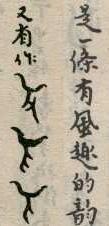 是一條有風趣的韵
又有作